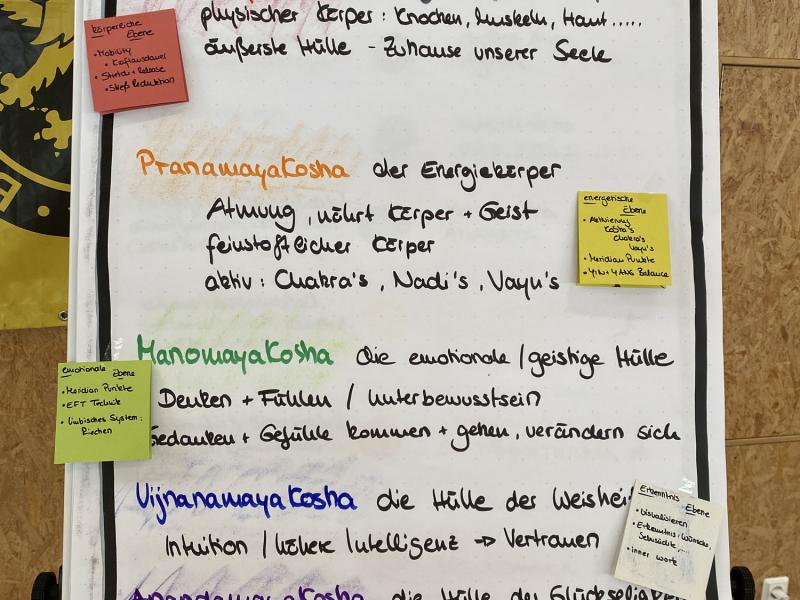 physischer Körper: Knochen, Muskeln, Haut.....
äußerste Hülle - Zuhause unserer Seele
körperliche Ebene
• Mobility
• Kraftausdauer
• Stretch + Release
• Streß Reduktion
PranamayaKosha der Energiekörper
Atmung, nährt Körper + Geist
feinstofflicher Körper
aktiv: Chakra's, Nadi's, Vayu's
energetische Ebene
• Aktivierung
Kosha's
Chakra's
Vayu's
• Meridian Punkte
• YIN + YANG Balance
ManomayaKosha die emotionale / geistige Hülle
Denken + Fühlen / Unterbewusstsein
Gedanken + Gefühle kommen + gehen, verändern sich
emotionale Ebene
• Meridian Punkte
• EFT Technik
• limbisches System:
Riechen
VijnanamayaKosha die Hülle der Weisheit
Intuition / höhere Intelligenz → Vertrauen
Erkenntnis Ebene
• visualisieren
• Erkenntnis, Wünsche,
Sehnsüchte, ...
• inner work
AnandamayaKosha die Hülle der Glückseligkeit